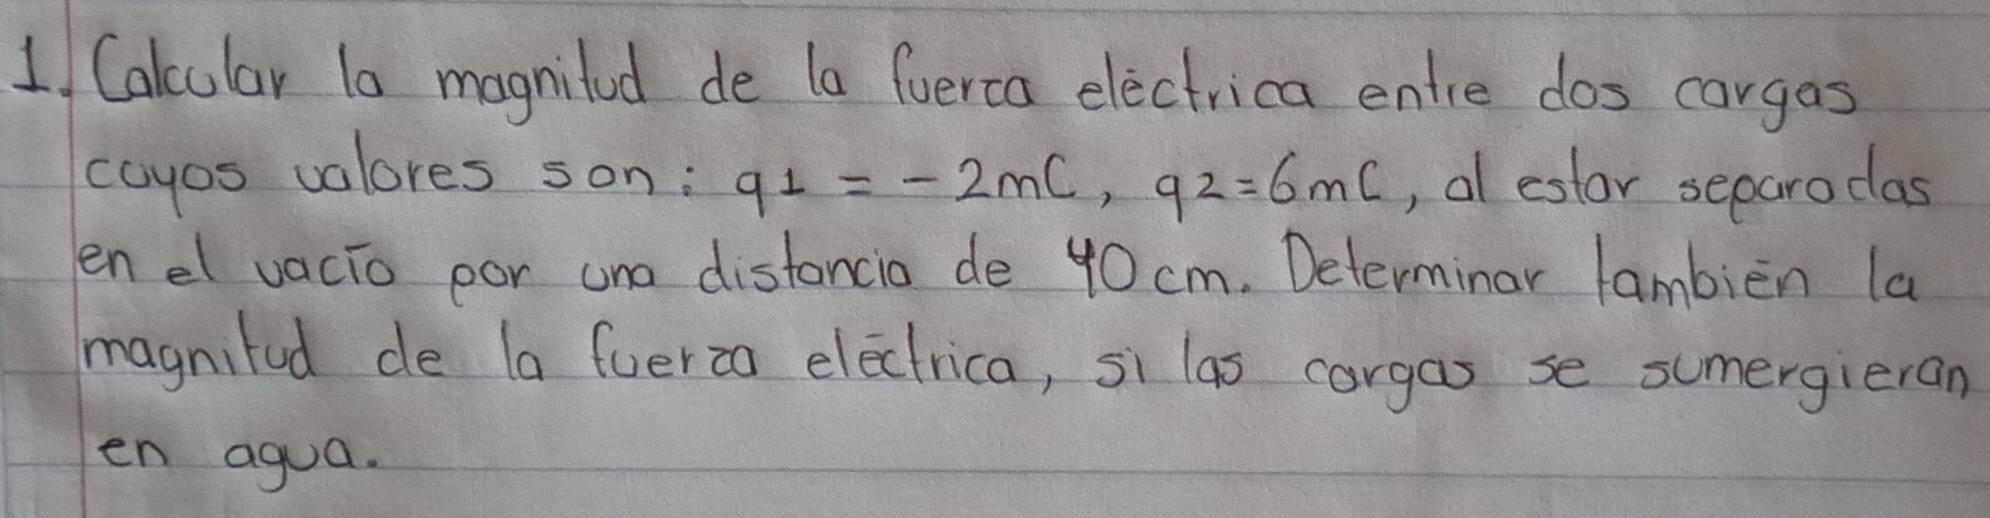 1. Calcular la magnitud de la fuerza eléctrica entre dos cargas
cuyos valores son: q1 = -2mC, q2=6mC, al estar separadas
en el vacío por una distancia de 40cm. Determinar también la
magnitud de la fuerza eléctrica, si las cargas se sumergieran
en agua.